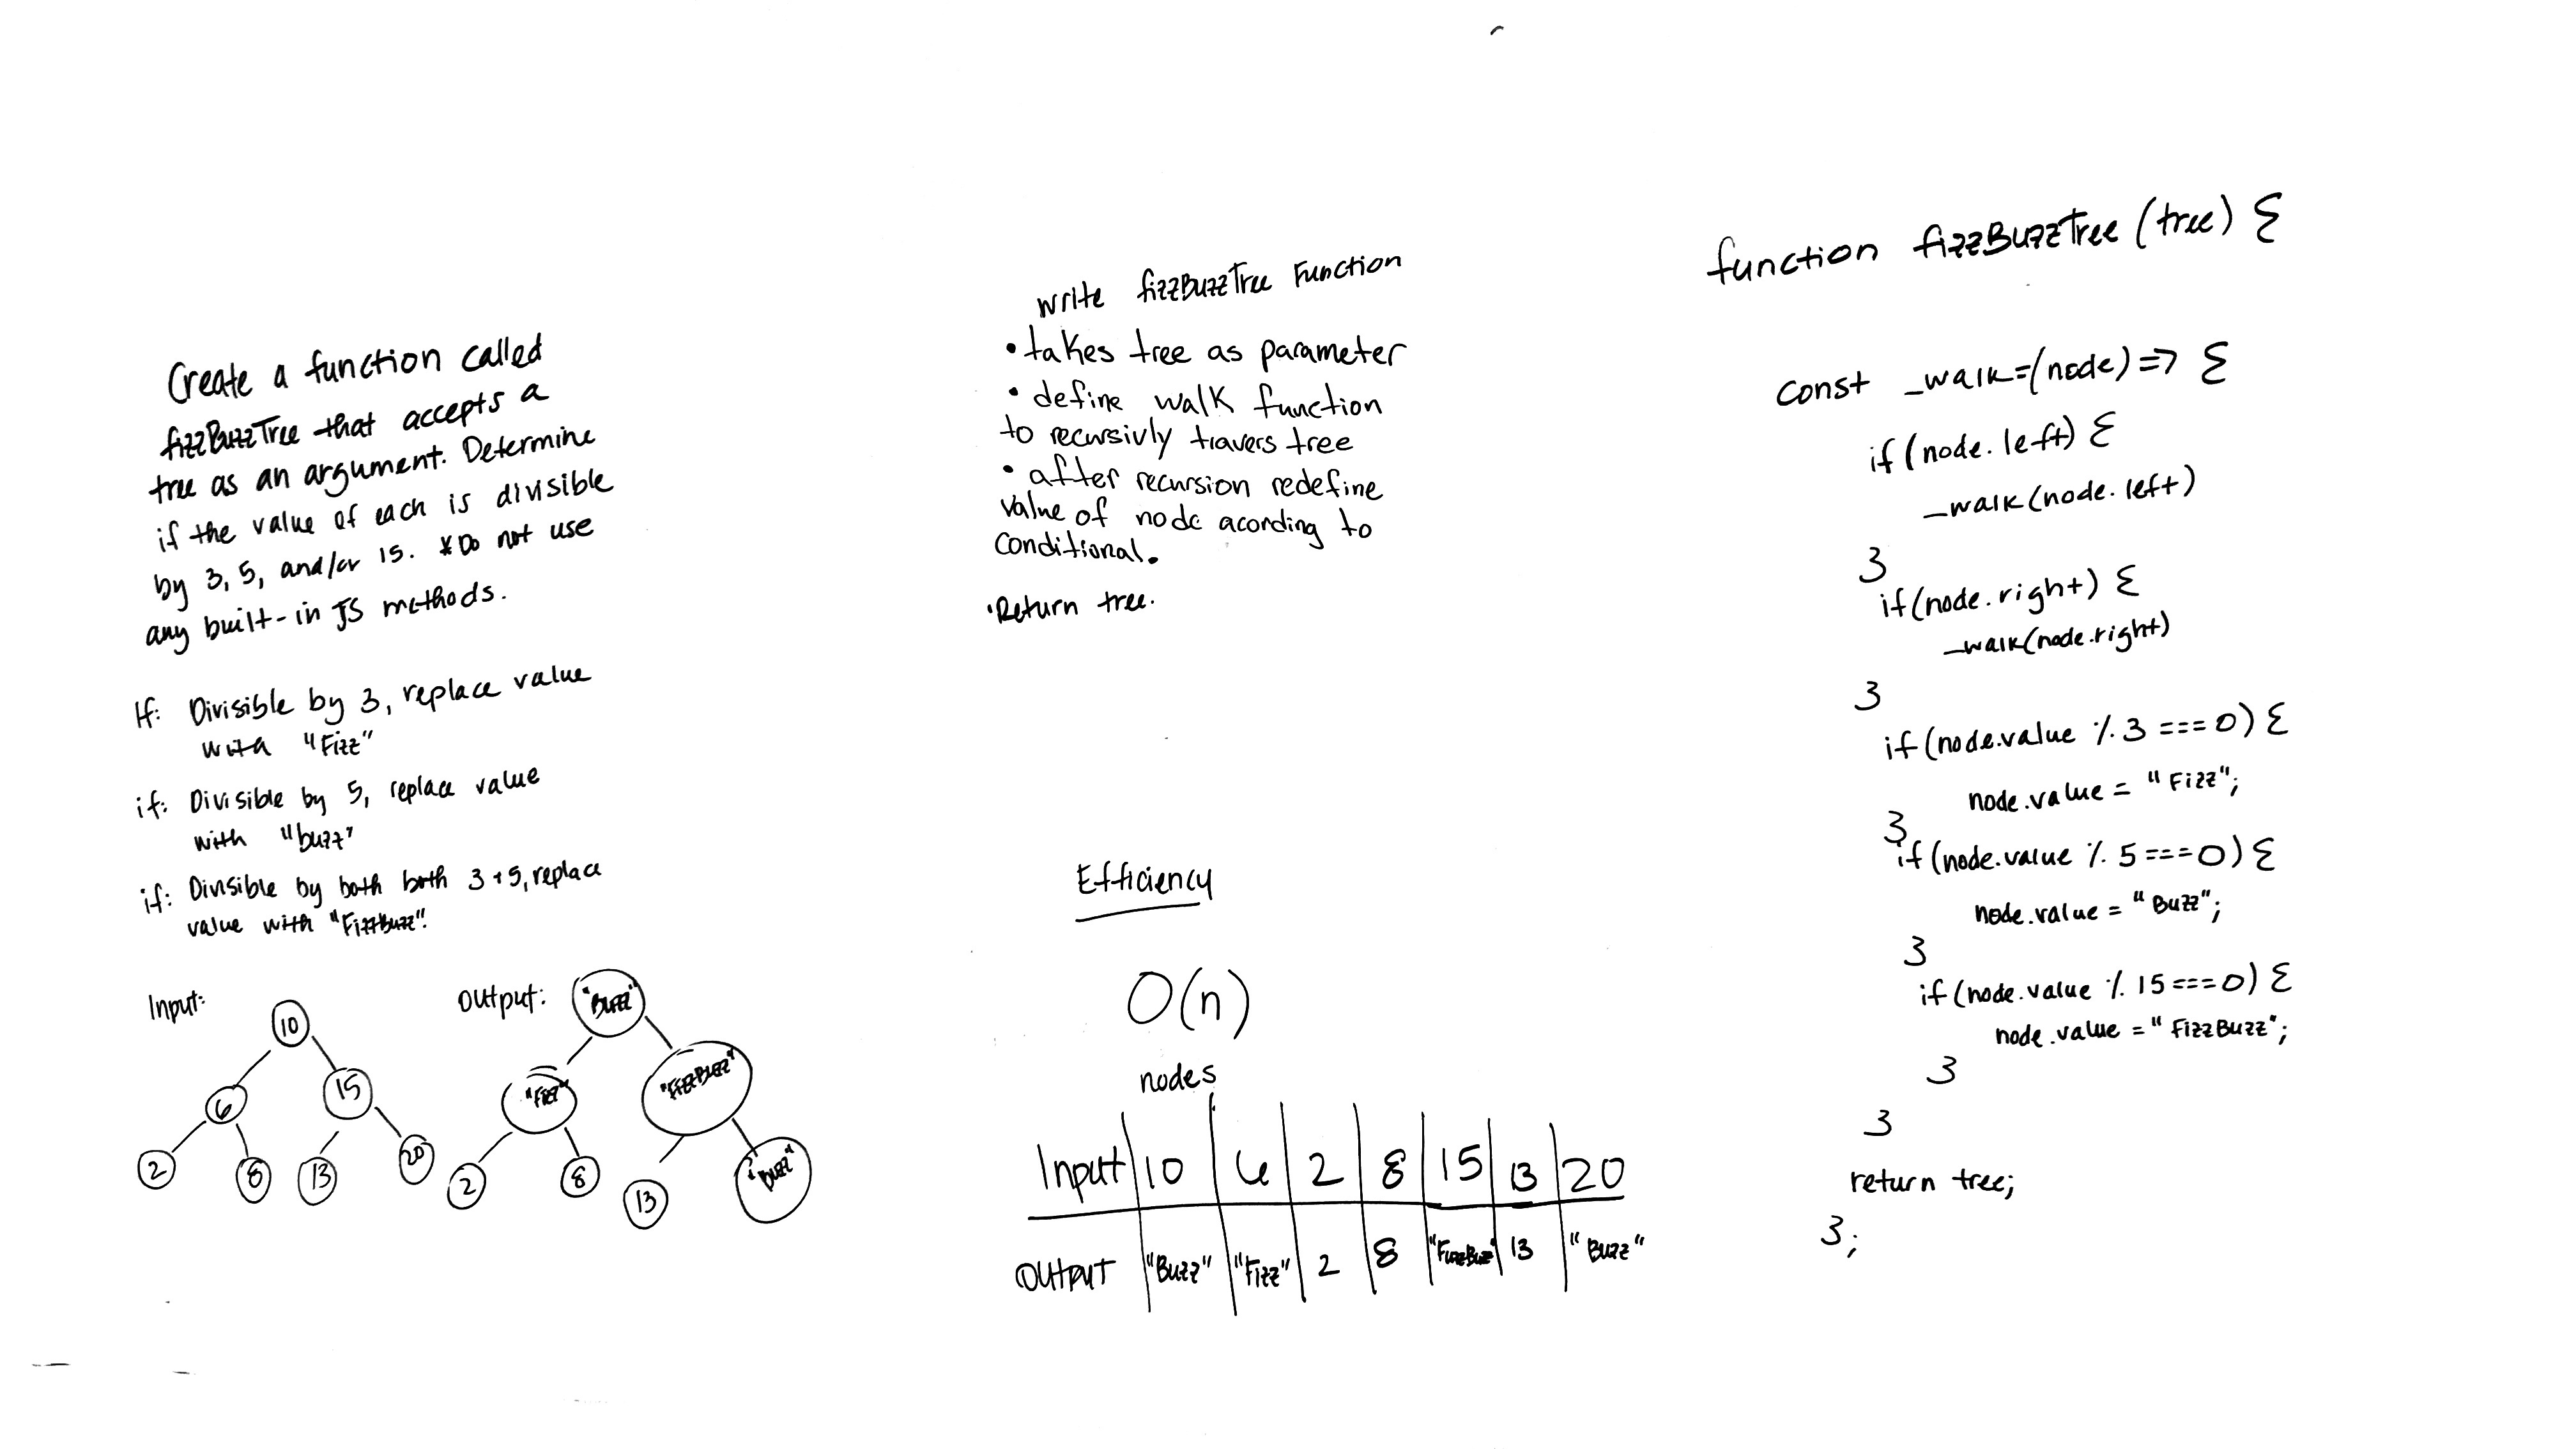 Create a function called
fizzBuzzTree that accepts a
tree as an argument. Determine
if the value of each is divisible
by 3, 5, and/or 15. *Do not use
any built-in JS methods.
If: Divisible by 3, replace value
with "Fizz"
if: Divisible by 5, replace value
with "buzz"
if: Divisible by both both 3+5, replace
value with "FizzBuzz".
Input:
10
6
15
2
8
13
20
Output:
"Buzz"
"Fizz"
"FizzBuzz"
2
8
13
"Buzz"
write fizzBuzzTree Function
• takes tree as parameter
• define walk function
to recursivly travers tree
• after recursion redefine
value of node acording to
conditional.
• Return tree.
Efficiency
O(n)
nodes
Input 10 6 2 8 15 13 20
Output "Buzz" "Fizz" 2 8 "FizzBuzz" 13 "Buzz"
function fizzBuzzTree (tree) {
const _walk=(node) => {
if (node.left) {
_walk(node.left)
}
if(node.right) {
_walk(node.right)
}
if(node.value % 3 === 0) {
node.value = "Fizz";
}
if(node.value % 5 === 0) {
node.value = "Buzz";
}
if(node.value % 15 === 0) {
node.value = "FizzBuzz";
}
}
return tree;
};